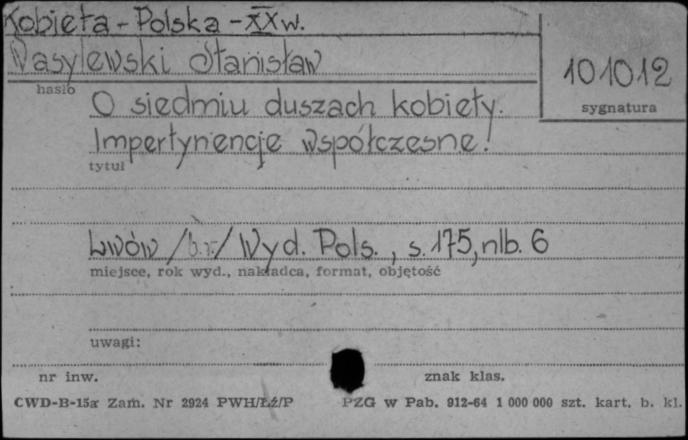 Kobieta - Polska - XX w.
Wasylewski Stanisław
101012
hasło
sygnatura
O siedmiu duszach kobiety.
Impertynencje współczesne!
tytuł
Lwów /b.r./ Wyd. Pols., s. 175, nlb. 6
miejsce, rok wyd., nakładca, format, objętość
uwagi:
nr inw.
znak klas.
CWD-B-15a Zam. Nr 2924 PWH/Łź/P PZG w Pab. 912-64 1 000 000 szt. kart. b. kl.